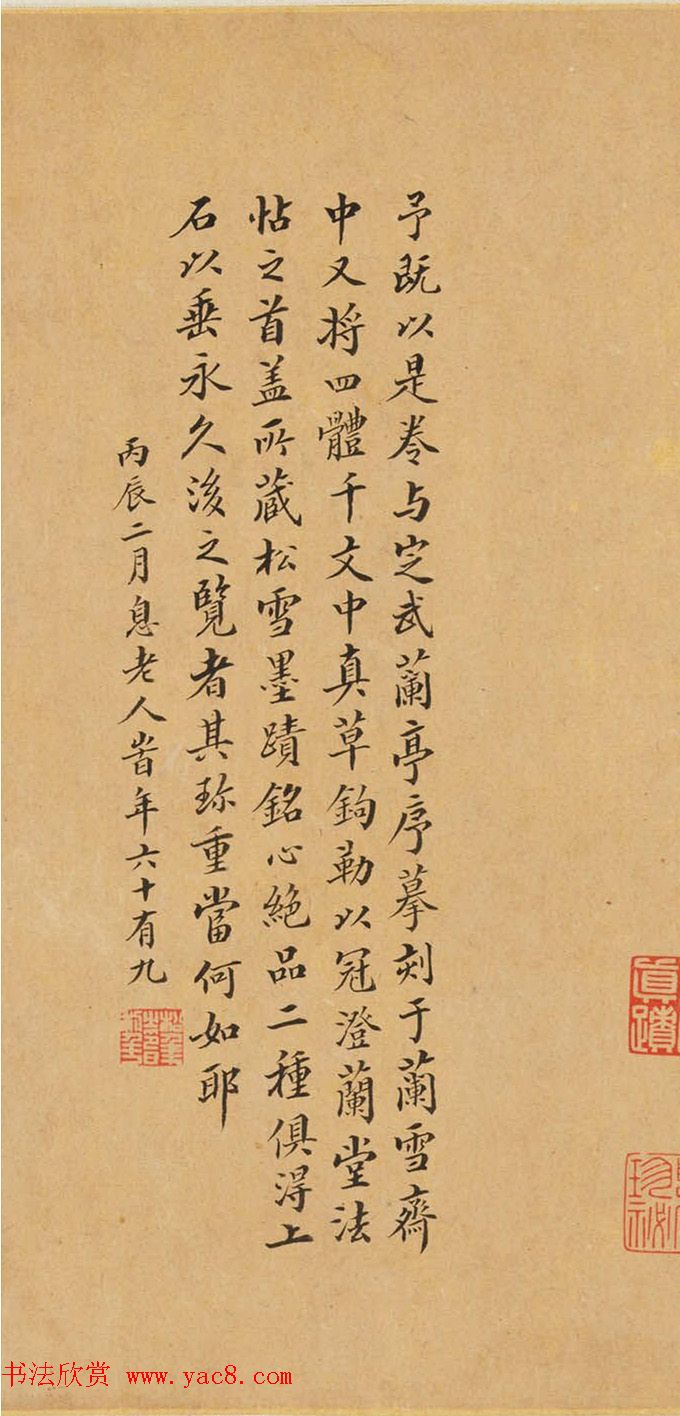 予既以是卷与定武蘭亭序摹刻于蘭雪齋
中又将四體千文中真草鉤勒以冠澄蘭堂法
帖之首盖所蔵松雪墨蹟銘心絶品二種俱淂上
石以垂永久後之覽者其珎重當何如耶
丙辰二月息老人皆年六十有九
真蹟
书法欣赏 www.yac8.com